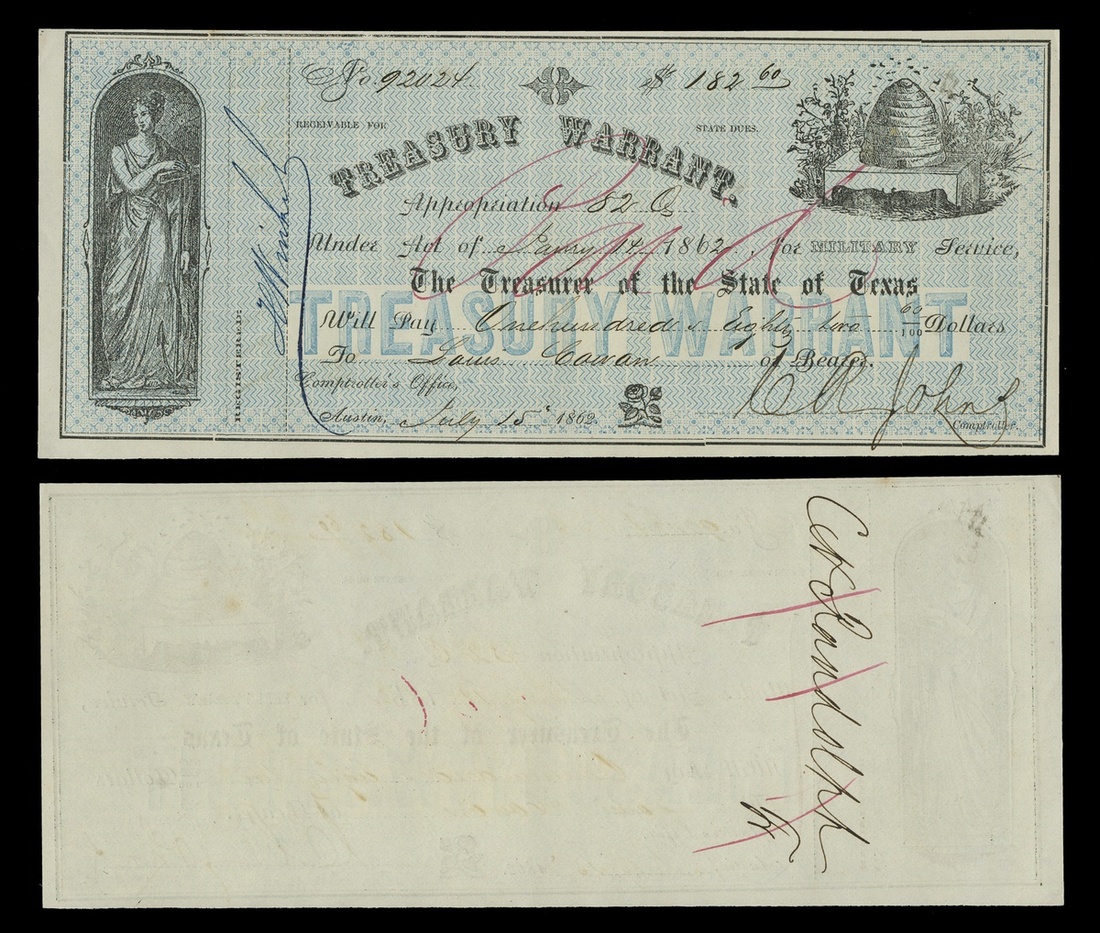 No. 92024. $ 182 60
RECEIVABLE FOR STATE DUES.
TREASURY WARRANT.
Appropriation 82
Under Act of Jany 14 1862, for MILITARY Service,
The Treasurer of the State of Texas
TREASURY WARRANT
Will Pay Onehundred & Eighty two 60/100 Dollars
To Louis Cowan or Bearer.
Comptroller's Office,
Austin, July 15 1862
C R Johns
Comptroller.
REGISTERED:
Paid
C H Randolph
Tr